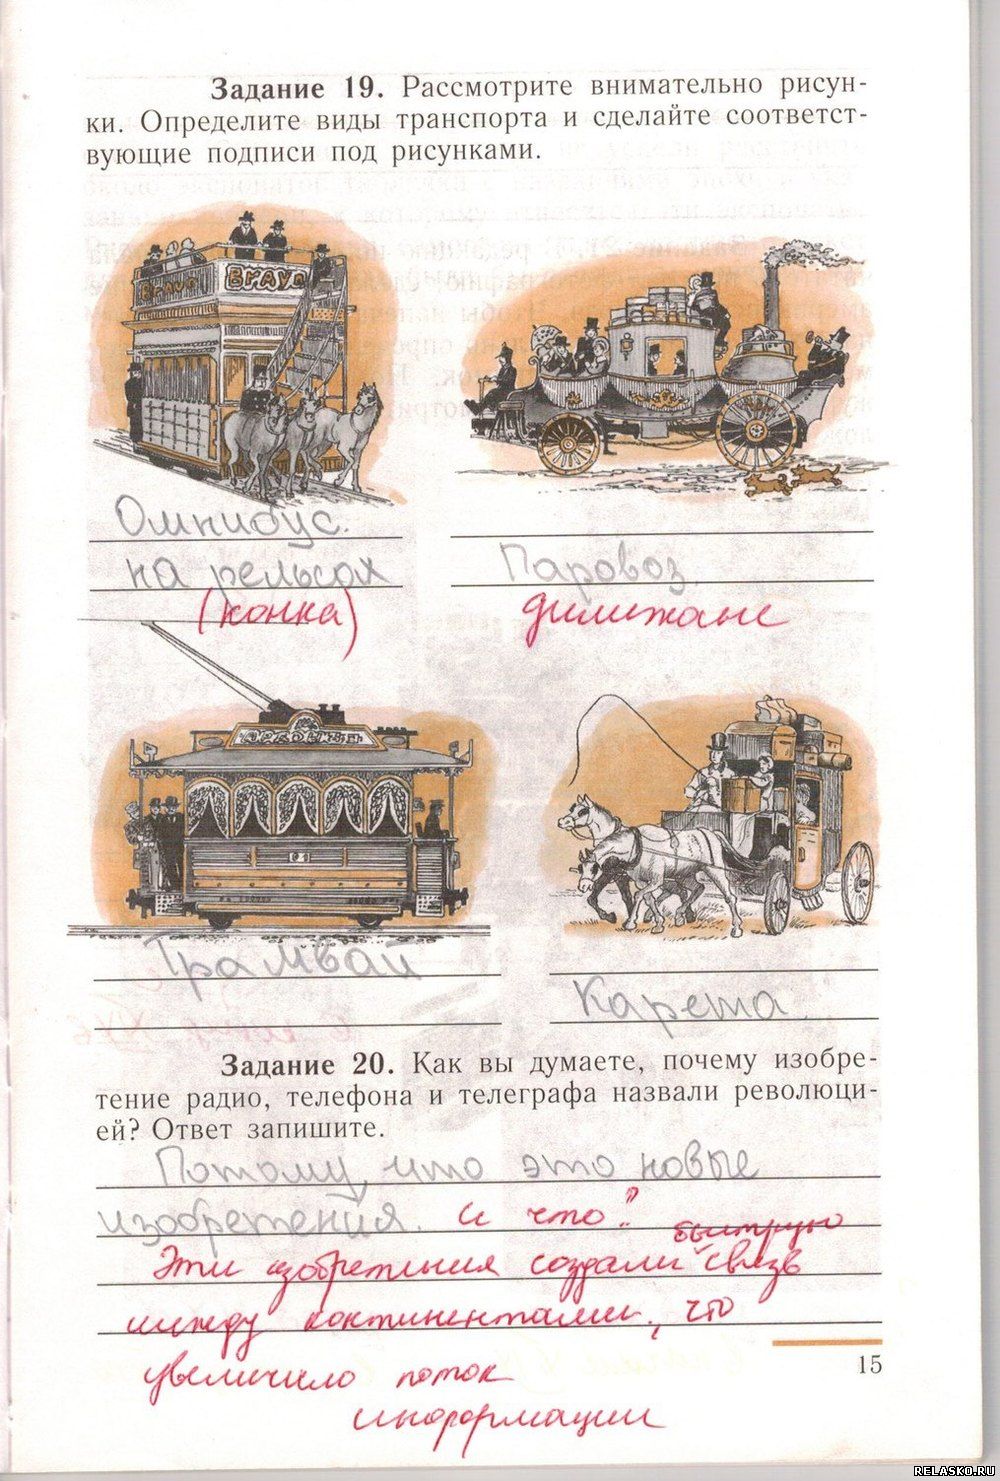 Задание 19. Рассмотрите внимательно рисун-
ки. Определите виды транспорта и сделайте соответст-
вующие подписи под рисунками.
Омнибус
на рельсах
(конка)
Паровоз
дилижанс
Трамвай
Карета
Задание 20. Как вы думаете, почему изобре-
тение радио, телефона и телеграфа назвали революци-
ей? Ответ запишите.
Потому, что это новые
изобретения. и что?
быструю
Эти изобретения создали связь
между континентами, что
увеличило поток
информации
15
RELASKO.RU